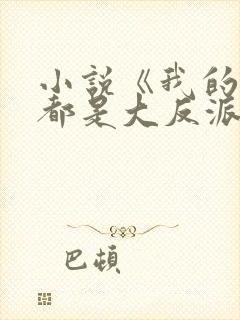 小说《我的
都是大反派
巴顿